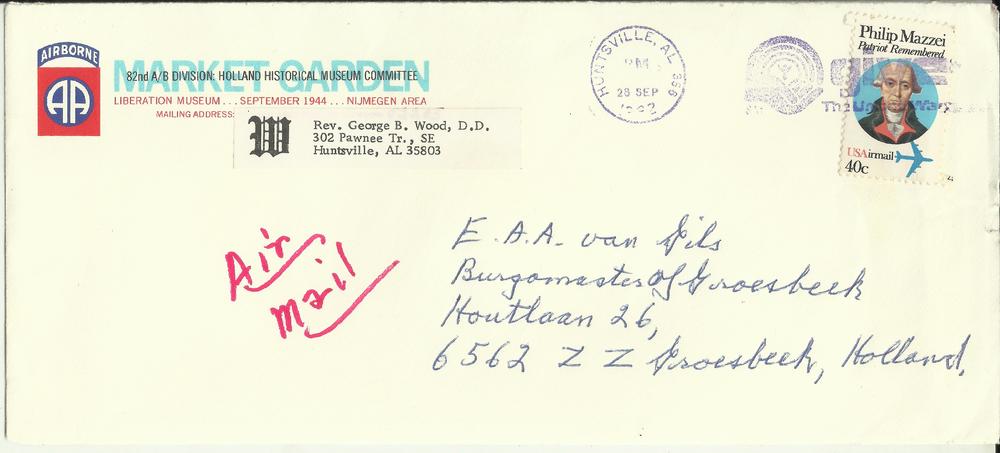 AIRBORNE
AA
MARKET GARDEN
82nd A/B DIVISION: HOLLAND HISTORICAL MUSEUM COMMITTEE
LIBERATION MUSEUM . . . SEPTEMBER 1944 . . . NIJMEGEN AREA
MAILING ADDRESS:
W
Rev. George B. Wood, D.D.
302 Pawnee Tr., SE
Huntsville, AL 35803
HUNTSVILLE, AL 358
PM
28 SEP
1982
Philip Mazzei
Patriot Remembered
USAirmail
40c
The Way
Air
Mail
E.A.A. van Gils
Burgomaster Of Groesbeek
Houtlaan 26,
6562 Z Z Groesbeek, Holland,